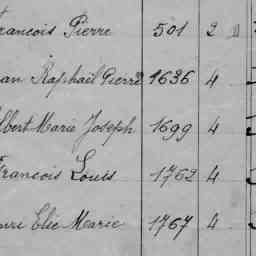 François Pierre 501 2
an Raphaël Pierre 1636 4
lbert Marie Joseph 1699 4
François Louis 1762 4
enri Elie Marie 1767 4